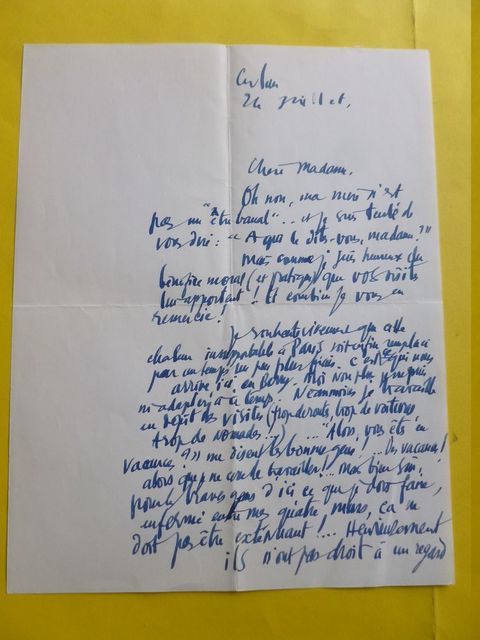 24 juillet,
Chère Madame,
Oh non, ma mère n'est
pas un "être banal"... et je suis tenté de
vous dire : "A qui le dites-vous, madame ?"
Mais comme je suis heureux du
moral (et pratique) que vos visites
lui apportent ! Et combien je vous en
remercie !
Je souhaite vivement que cette
chaleur insupportable à Paris soit enfin remplacée
par un temps un peu plus frais. C'est ce qui nous
arrive ici, en Berry. Moi non plus je ne puis
m'adapter à ce temps. Néanmoins je travaille
en dépit des visites (trop de routes, trop de voitures
trop de nomades...) ... "Alors, vous êtes en
vacances ?" me disent les bonnes gens ! Des vacances !
alors que je ne cesse de travailler !... mais bien sûr,
pour les braves gens d'ici ce que je dois faire,
enfermé entre mes quatre murs, ça ne
doit pas être exténuant !... Heureusement
ils n'ont pas droit à un regard